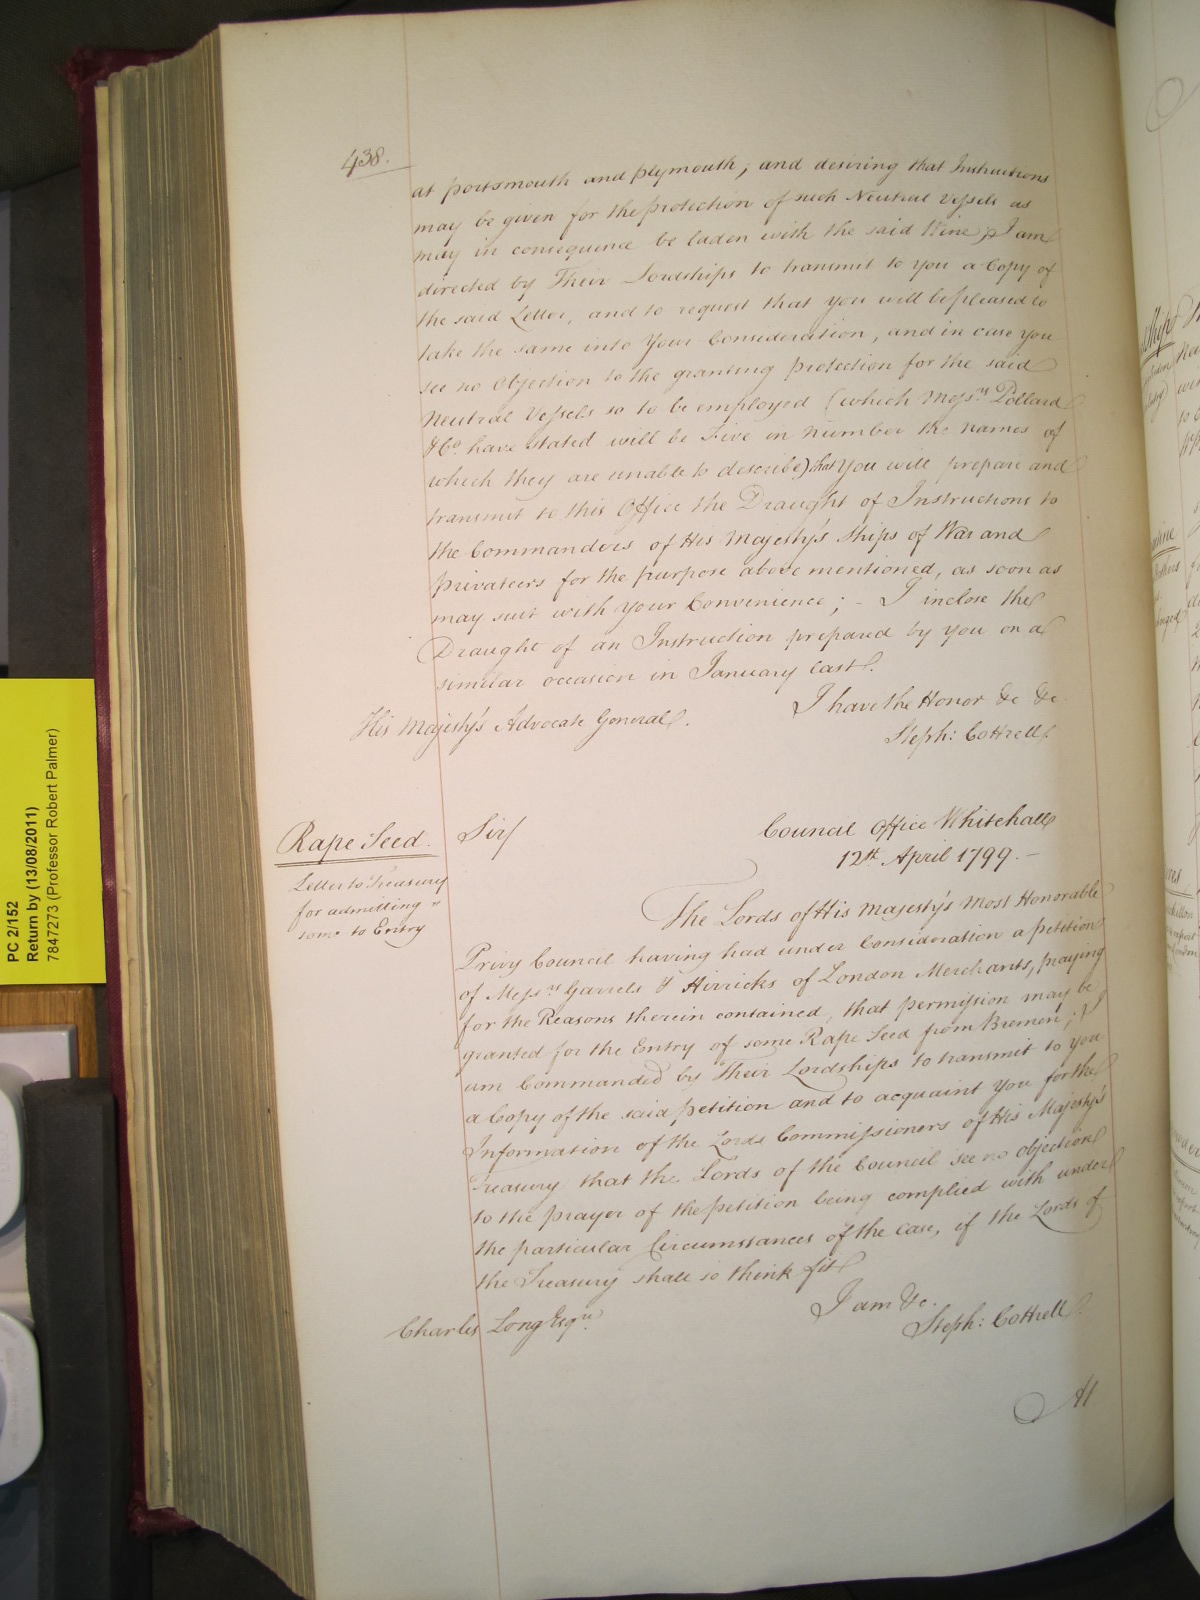 438.
at portsmouth and plymouth; and desiring that Instructions
may be given for the protection of such Neutral Vessels as
may in consequence be laden with the said Wine, I am
directed by Their Lordships to transmit to you a Copy of
the said Letter, and to request that you will be pleased to
take the same into Your Consideration, and in case you
see no Objection to the granting protection for the said
Neutral Vessels so to be employed (which Messrs Pollard
& Co. have stated will be Five in number the names of
which they are unable to describe) that You will prepare and
transmit to this Office the Draught of Instructions to
the Commanders of His Majesty's Ships of War and
privateers for the purpose above mentioned, as soon as
may suit with your Convenience; - I inclose the
Draught of an Instruction prepared by you on a
similar occasion in January last.
I have the Honor &c &c
His Majesty's Advocate General.
Steph: Cottrell.
Rape Seed.
Letter to Treasury
for admitting
some to Entry
Sir/
Council Office Whitehall
12th April 1799. -
The Lords of His Majesty's Most Honorable
Privy Council having had under Consideration a petition
of Messrs Garrels & Hirricks of London Merchants, praying
for the Reasons therein contained, that permission may be
granted for the Entry of some Rape Seed from Bremen; I
am Commanded by Their Lordships to transmit to you
a Copy of the said petition and to acquaint You for the
Information of the Lords Commissioners of His Majesty's
Treasury that the Lords of the Council see no objection
to the prayer of the petition being complied with under
the particular Circumstances of the case, if the Lords of
the Treasury shall so think fit
I am &c.
Charles Long Esqre
Steph: Cottrell.
At
PC 2/152
Return by (13/08/2011)
7847273 (Professor Robert Palmer)